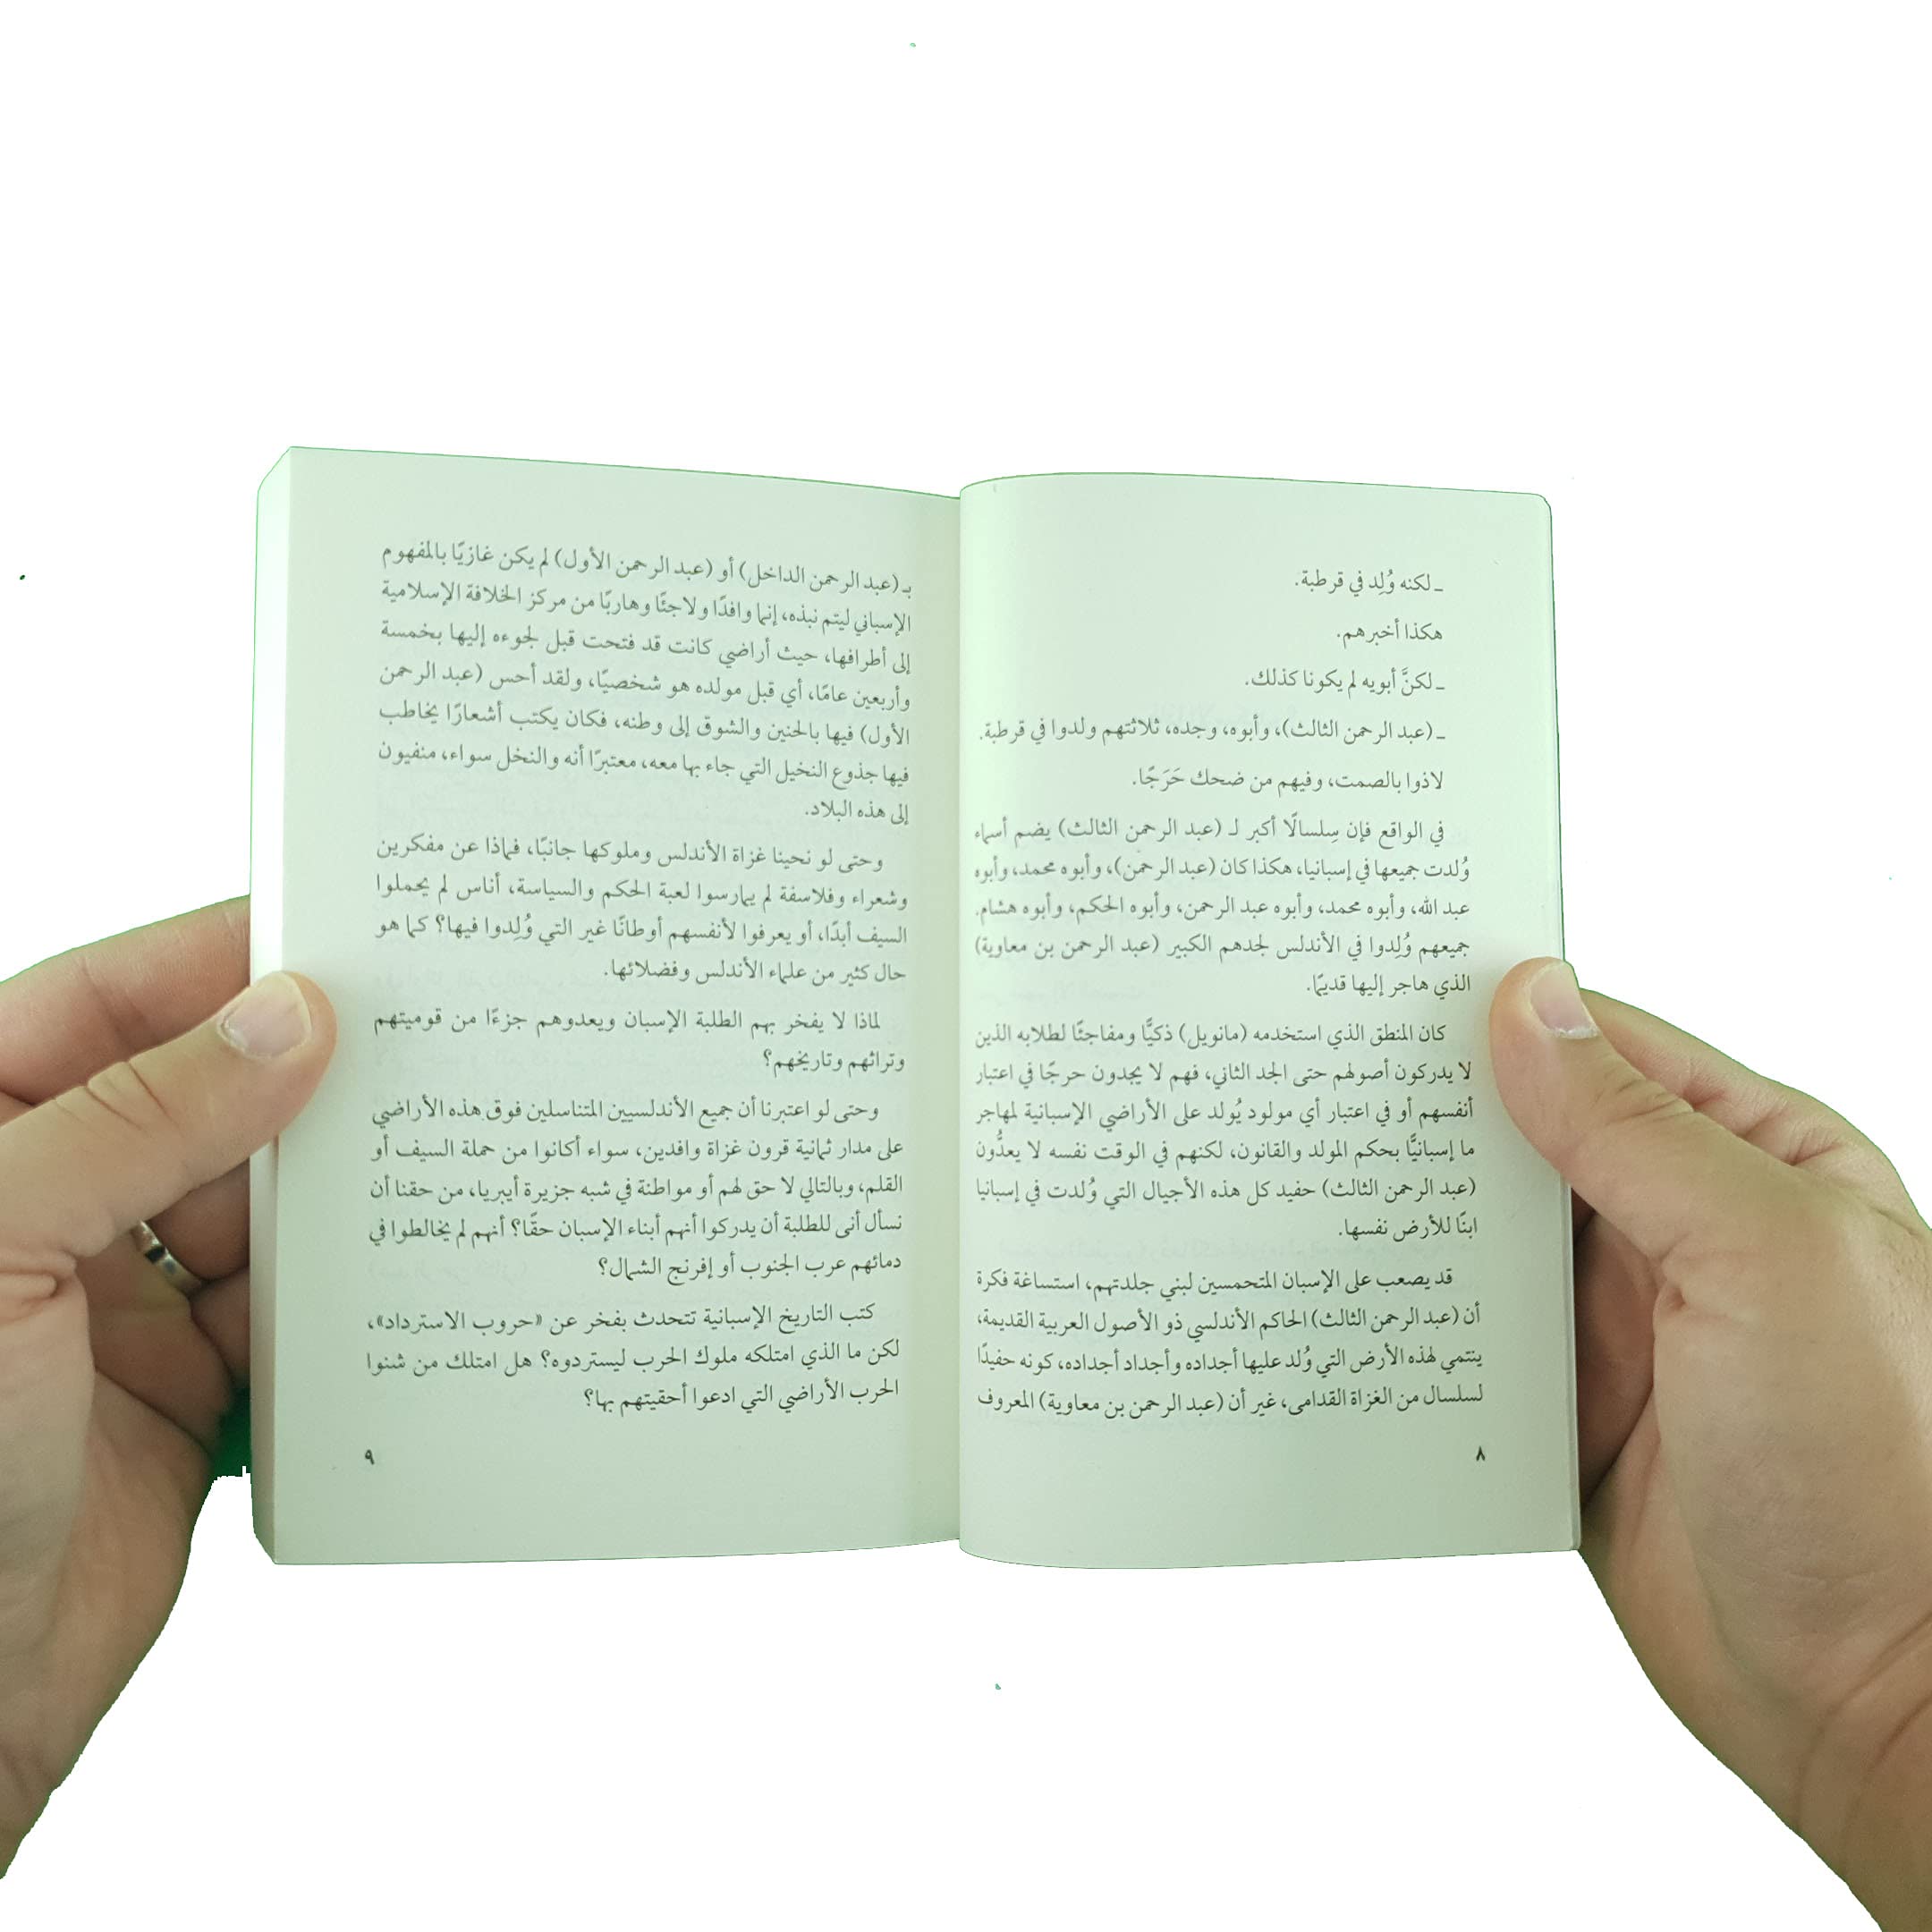 ـ لكنه وُلِد في قرطبة.
هكذا أخبرهم.
ـ لكنَّ أبويه لم يكونا كذلك.
ـ (عبد الرحمن الثالث)، وأبوه، وجده، ثلاثتهم ولدوا في قرطبة.
لاذوا بالصمت، وفيهم من ضحك حَرَجًا.
في الواقع فإن سِلسالًا أكبر لـ (عبد الرحمن الثالث) يضم أسماء
وُلدت جميعها في إسبانيا، هكذا كان (عبد الرحمن)، وأبوه محمد، وأبوه
عبد الله، وأبوه محمد، وأبوه عبد الرحمن، وأبوه الحكم، وأبوه هشام.
جميعهم وُلِدوا في الأندلس لجدهم الكبير (عبد الرحمن بن معاوية)
الذي هاجر إليها قديمًا.
كان المنطق الذي استخدمه (مانويل) ذكيًّا ومفاجئًا لطلابه الذين
لا يدركون أصولهم حتى الجد الثاني، فهم لا يجدون حرجًا في اعتبار
أنفسهم أو في اعتبار أي مولود يُولد على الأراضي الإسبانية لمهاجر
ما إسبانيًّا بحكم المولد والقانون، لكنهم في الوقت نفسه لا يعدُّون
(عبد الرحمن الثالث) حفيد كل هذه الأجيال التي وُلدت في إسبانيا
ابنًا للأرض نفسها.
قد يصعب على الإسبان المتحمسين لبني جلدتهم، استساغة فكرة
أن (عبد الرحمن الثالث) الحاكم الأندلسي ذو الأصول العربية القديمة،
ينتمي لهذه الأرض التي وُلد عليها أجداده وأجداد أجداده، كونه حفيدًا
لسلسال من الغزاة القدامى، غير أن (عبد الرحمن بن معاوية) المعروف
٨
بـ (عبد الرحمن الداخل) أو (عبد الرحمن الأول) لم يكن غازيًا بالمفهوم
الإسباني ليتم نبذه، إنما وافدًا ولاجئًا وهاربًا من مركز الخلافة الإسلامية
إلى أطرافها، حيث أراضي كانت قد فتحت قبل لجوءه إليها بخمسة
وأربعين عامًا، أي قبل مولده هو شخصيًا، ولقد أحس (عبد الرحمن
الأول) فيها بالحنين والشوق إلى وطنه، فكان يكتب أشعارًا يخاطب
فيها جذوع النخيل التي جاء بها معه، معتبرًا أنه والنخل سواء، منفيون
إلى هذه البلاد.
وحتى لو نحينا غزاة الأندلس وملوكها جانبًا، فماذا عن مفكرين
وشعراء وفلاسفة لم يمارسوا لعبة الحكم والسياسة، أناس لم يحملوا
السيف أبدًا، أو يعرفوا لأنفسهم أوطانًا غير التي وُلِدوا فيها؟ كما هو
حال كثير من علماء الأندلس وفضلائها.
لماذا لا يفخر بهم الطلبة الإسبان ويعدوهم جزءًا من قوميتهم
وتراثهم وتاريخهم؟
وحتى لو اعتبرنا أن جميع الأندلسيين المتناسلين فوق هذه الأراضي
على مدار ثمانية قرون غزاة وافدين، سواء أكانوا من حملة السيف أو
القلم، وبالتالي لا حق لهم أو مواطنة في شبه جزيرة أيبريا، من حقنا أن
نسأل أنى للطلبة أن يدركوا أنهم أبناء الإسبان حقًا؟ أنهم لم يخالطوا في
دمائهم عرب الجنوب أو إفرنج الشمال؟
كتب التاريخ الإسبانية تتحدث بفخر عن «حروب الاسترداد»،
لكن ما الذي امتلكه ملوك الحرب ليستردوه؟ هل امتلك من شنوا
الحرب الأراضي التي ادعوا أحقيتهم بها؟
٩